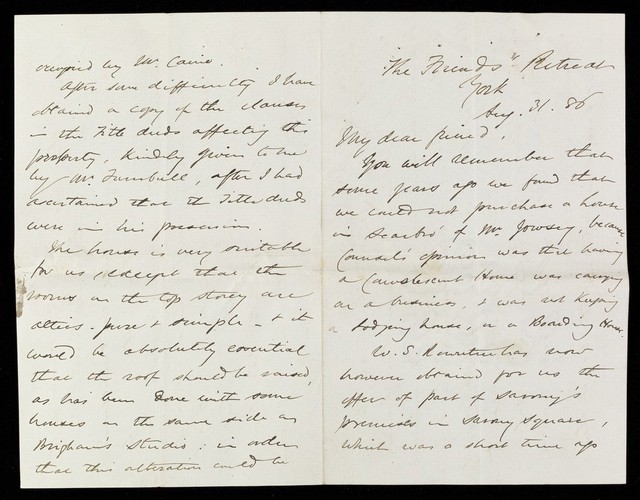 The Friends' Retreat
York
Aug. 31. 86
My dear friend,
You will remember that
some years ago we found that
we could not purchase a house
in Scarbro' of Mr. Jowsey, because
Counsel's opinion was that having
a Convalescent Home was carrying
on a business, & was not keeping
a Lodging house, or a Boarding House.
W. S. Rowntree has now
however obtained for us the
offer of part of Savory's
premises in Savory Square,
which was a short time ago
occupied by Mr. Caine.
After some difficulty I have
obtained a copy of the clauses
in the Title deeds affecting this
property, kindly given to me
by Mr. Turnbull, after I had
ascertained that the Title deeds
were in his possession.
The house is very suitable
for us, except that the
rooms in the top storey are
attics - pure & simple - & it
would be absolutely essential
that the roof should be raised,
as has been done with some
houses on the same side as
Brigham's Studio: in order
that this alteration could be